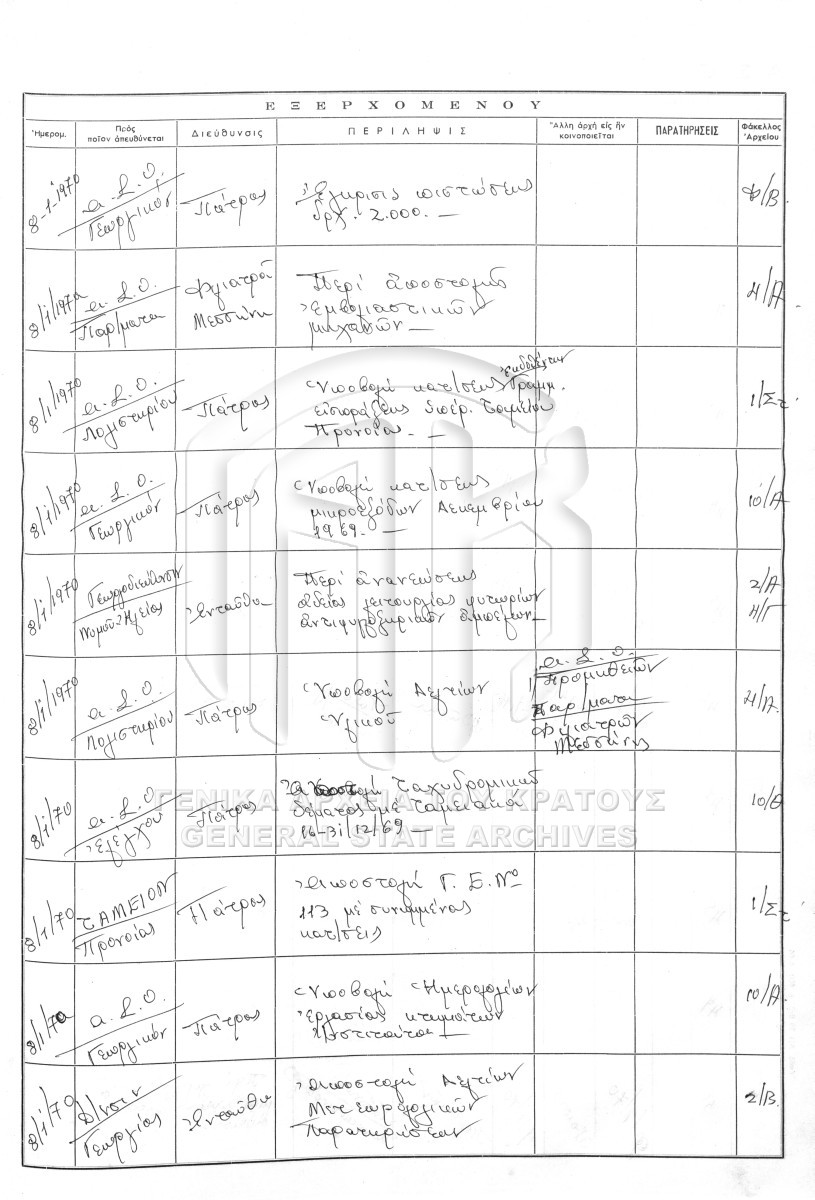 ΕΞΕΡΧΟΜΕΝΟΥ
Ἡμερομ.
Πρὸς
ποῖον ἀπευθύνεται
Διεύθυνσις
ΠΕΡΙΛΗΨΙΣ
Ἄλλη ἀρχὴ εἰς ἣν
κοινοποιεῖται
ΠΑΡΑΤΗΡΗΣΕΙΣ
Φάκελλος
Ἀρχείου
8-1-1970
Α.Σ.Ο.
Γεωργικόν
Πάτρας
Ἔγκρισις πιστώσεως
δρχ. 2.000.—
Φ/Β.
8/1/1970
Α.Σ.Ο.
Παρ/ματα
Φιλιατρά
Μεσσήνη
Περί ἀποστολῆς
Ἐμβολιαστικῶν
μηχανῶν —
Η/Α.
8/1/1970
Α.Σ.Ο.
Λογιστηρίου
Πάτρας
Ὑποβολή κατ/σεως ἐκδοθέντων Γραμμ.
εἰσπράξεως ὑπέρ Ταμείου
Προνοίας. —
1/Στ
8/1/1970
Α.Σ.Ο.
Γεωργικόν
Πάτρας
Ὑποβολή κατ/σεως
μικροεξόδων Δεκεμβρίου
1969. —
10/Α
8/1/1970
Γεωργ. Διεύθυνσιν
Νομοῦ Ἠλείας
Ἐνταῦθα
Περί ἀνανεώσεως
ἀδείας λειτουργίας φυτωρίων
ἀντιφυλλοξηρικῶν ἀμπέλων —
2/Α
Η/Γ
8/1/1970
Α.Σ.Ο.
Λογιστηρίου
Πάτρας
Ὑποβολή Δελτίων
Ὑλικοῦ
Α.Σ.Ο.
Προμηθειῶν
Παρ/ματα
Φιλιατρῶν
Μεσσήνης
Η/Α.
8/1/70
Α.Σ.Ο
Ἐλέγχου
Πάτρας
Ταχυδρομικοῦ
δέματος μέ Ταμειακά
16-31/12/69 —
10/Θ
8/1/70
ΤΑΜΕΙΟΝ
Προνοίας
Πάτρας
Ἀποστολή Γ. Ε. Νο
113 μέ συνημμένας
κατ/σεις
1/Στ
8/1/70
Α.Σ.Ο.
Γεωργικόν
Πάτρας
Ὑποβολή Ἡμερολογίων
Ἐργασίας κτημάτων
Ἰνστιτούτου —
10/Α.
8/1/70
Δ/νσιν
Γεωργίας
Ἐνταῦθα
Ἀποστολή Δελτίων
Μετεωρολογικῶν
Παρατηρήσεων
2/Β.
ΓΕΝΙΚΑ ΑΡΧΕΙΑ ΤΟΥ ΚΡΑΤΟΥΣ
GENERAL STATE ARCHIVES